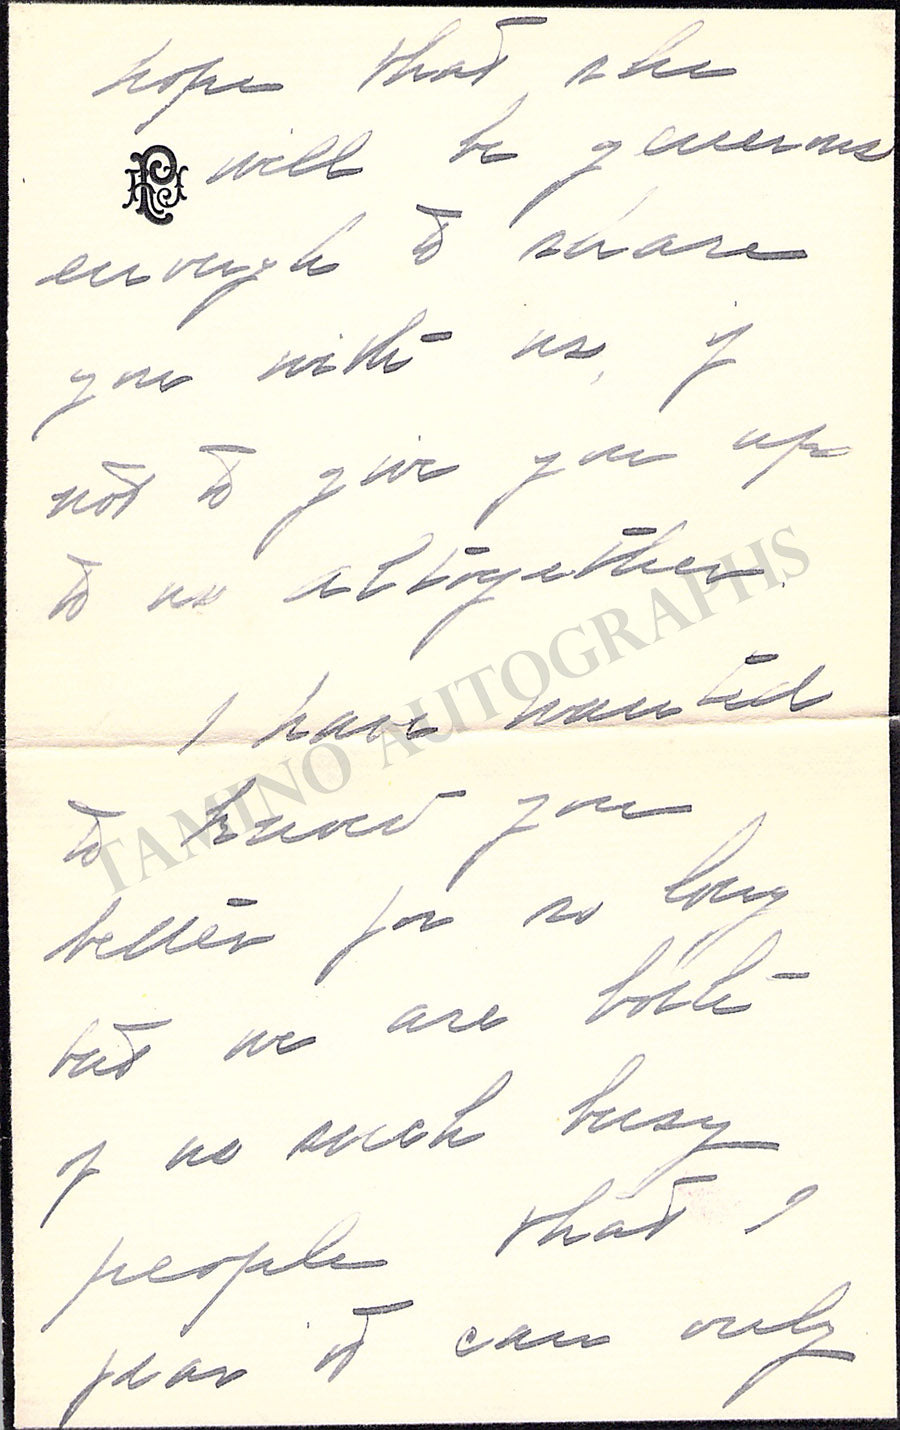 hope that she
will be generous
enough to share
you with us, if
not to give you up
to us altogether.
I have wanted
to know you
better for so long
but we are both
of us such busy
people that I
fear it can only
TAMINO AUTOGRAPHS